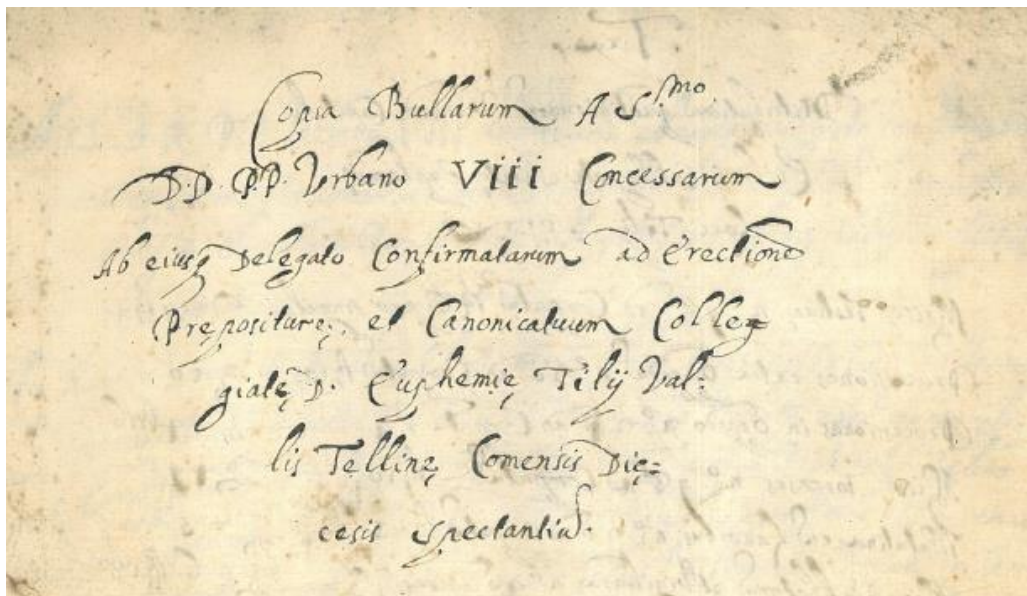 Copia Bullarum A S.mo
D.D. P.P. Urbano VIII Concessarum
Ab eiusq Delegato Confirmatarum ad Erectionē
Prępositurę, et Canonicatuum Colleg=
giatę D. Euphemię Tilij Val:
lis Tęllinę Comensis Dię=
cesis spectantiū.